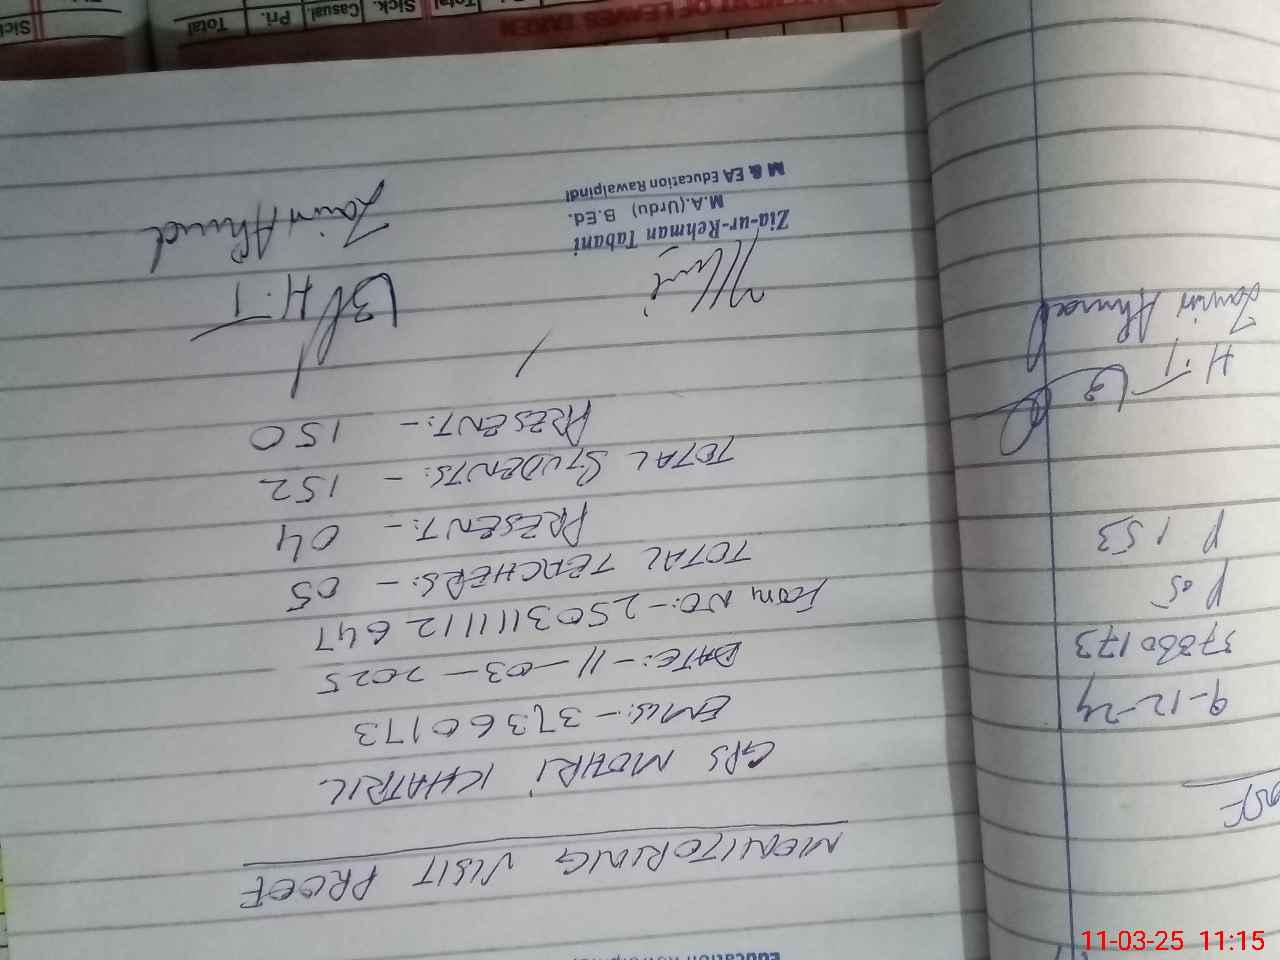 MONITORING VISIT PROOF
GPS MOHRI KHATRIL
EMIS:- 37360173
DATE:- 11-03-2025
FORM NO:- 2503111112647
TOTAL TEACHERS:- 05
PRESENT:- 04
TOTAL STUDENTS:- 152
PRESENT:- 150
Zia-ur-Rehman Tabani
M.A.(Urdu) B.Ed.
M & EA Education Rawalpindi
H.T
Ahmed
9-12-24
37360173
P 05
P 153
H.T
Ahmed
Total Pri. Casual Sick. Total
OF LEAVES TAKEN
Sick
11-03-25 11:15